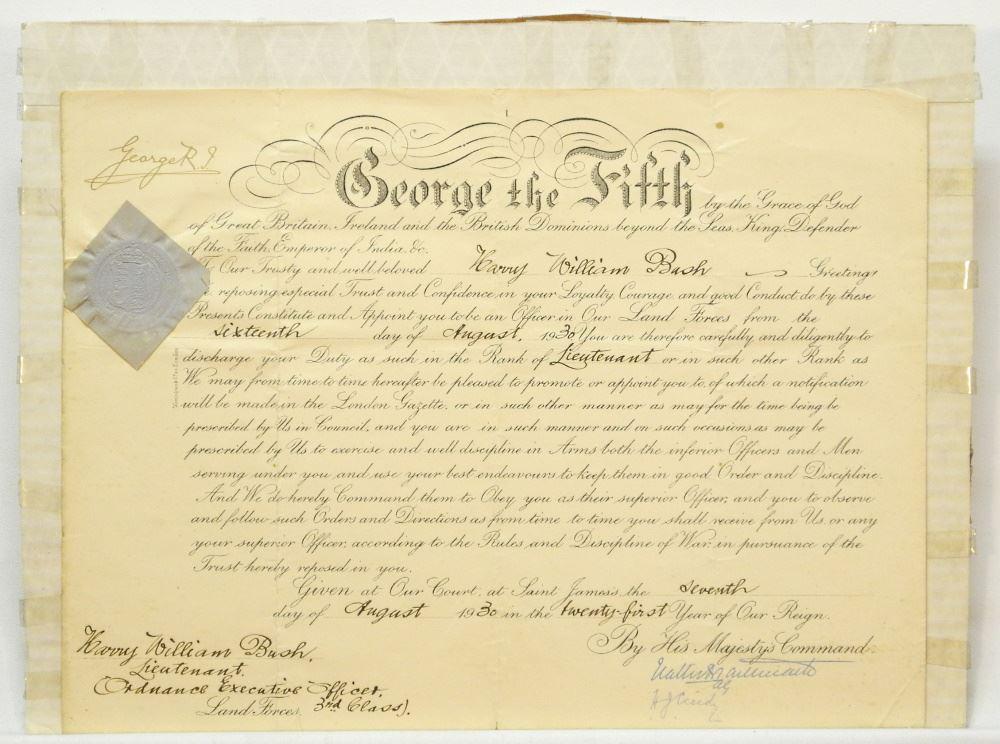 George R.I.
George the Fifth by the Grace of God
of Great Britain, Ireland and the British Dominions beyond the Seas, King, Defender
of the Faith, Emperor of India, &c.
To Our Trusty and well beloved Harry William Bush Greeting,
We, reposing especial Trust and Confidence in your Loyalty, Courage, and good Conduct, do by these
Presents Constitute and Appoint you to be an Officer in Our Land Forces from the
sixteenth day of August, 1930 You are therefore carefully and diligently to
discharge your Duty as such in the Rank of Lieutenant or in such other Rank as
We may from time to time hereafter be pleased to promote or appoint you to, of which a notification
will be made in the London Gazette, or in such other manner as may for the time being be
prescribed by Us in Council, and you are in such manner and on such occasions as may be
prescribed by Us to exercise and well discipline in Arms both the inferior Officers and Men
serving under you and use your best endeavours to keep them in good Order and Discipline.
And We do hereby Command them to Obey you as their superior Officer, and you to observe
and follow such Orders and Directions as from time to time you shall receive from Us, or any
your superior Officer, according to the Rules and Discipline of War, in pursuance of the
Trust hereby reposed in you.
Given at Our Court, at Saint James's, the seventh
day of August 1930 in the twenty-first Year of Our Reign.
By His Majesty's Command.
Harry William Bush.
Lieutenant.
Ordnance Executive Officer,
Land Forces. 3rd Class).